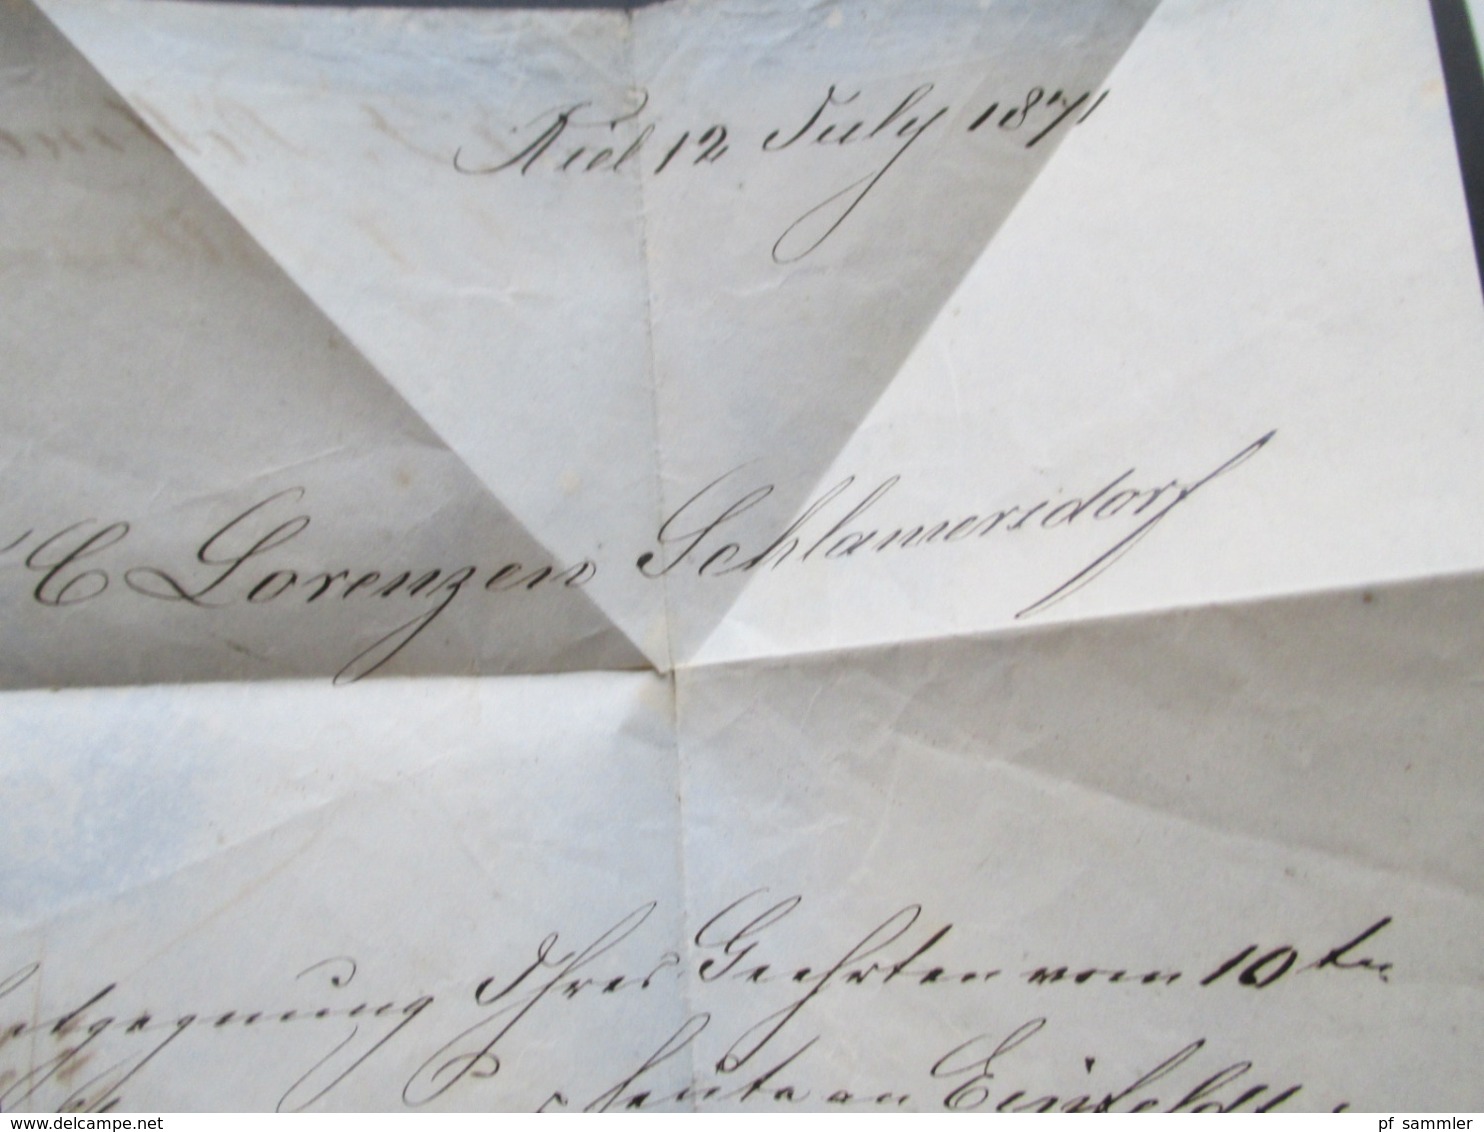 Kiel 12 July 1871
C Lorenzen Schlamersdorf
Ihres Geehrten vom 10ten
heute an Einfeldt
www.delcampe.net
pf_sammler